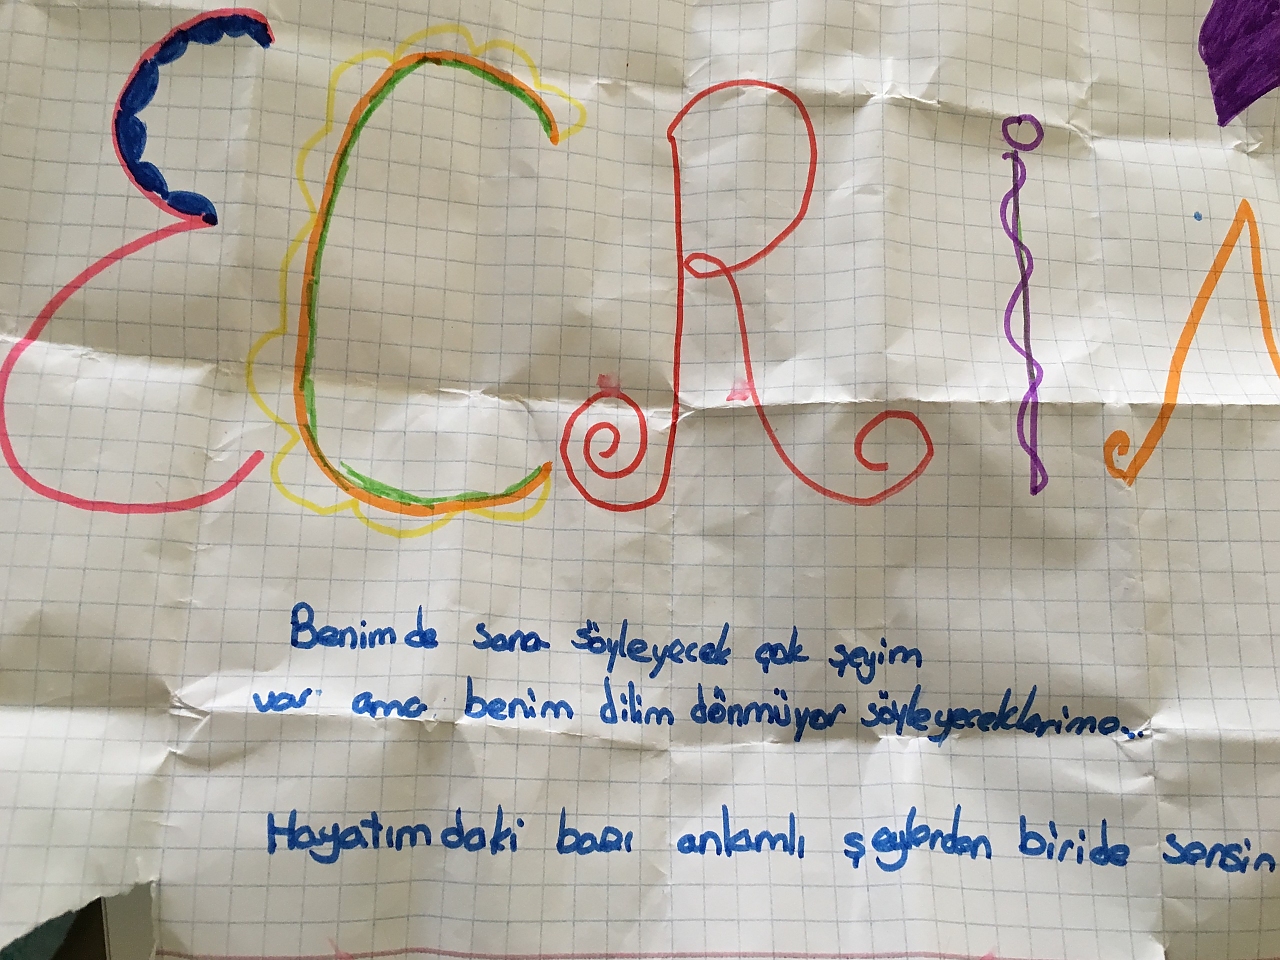 ECRİN
Benimde sana söyleyecek çok şeyim
var ama benim dilim dönmüyor söyleyeceklerime..
Hayatımdaki bazı anlamlı şeylerden biride sensin